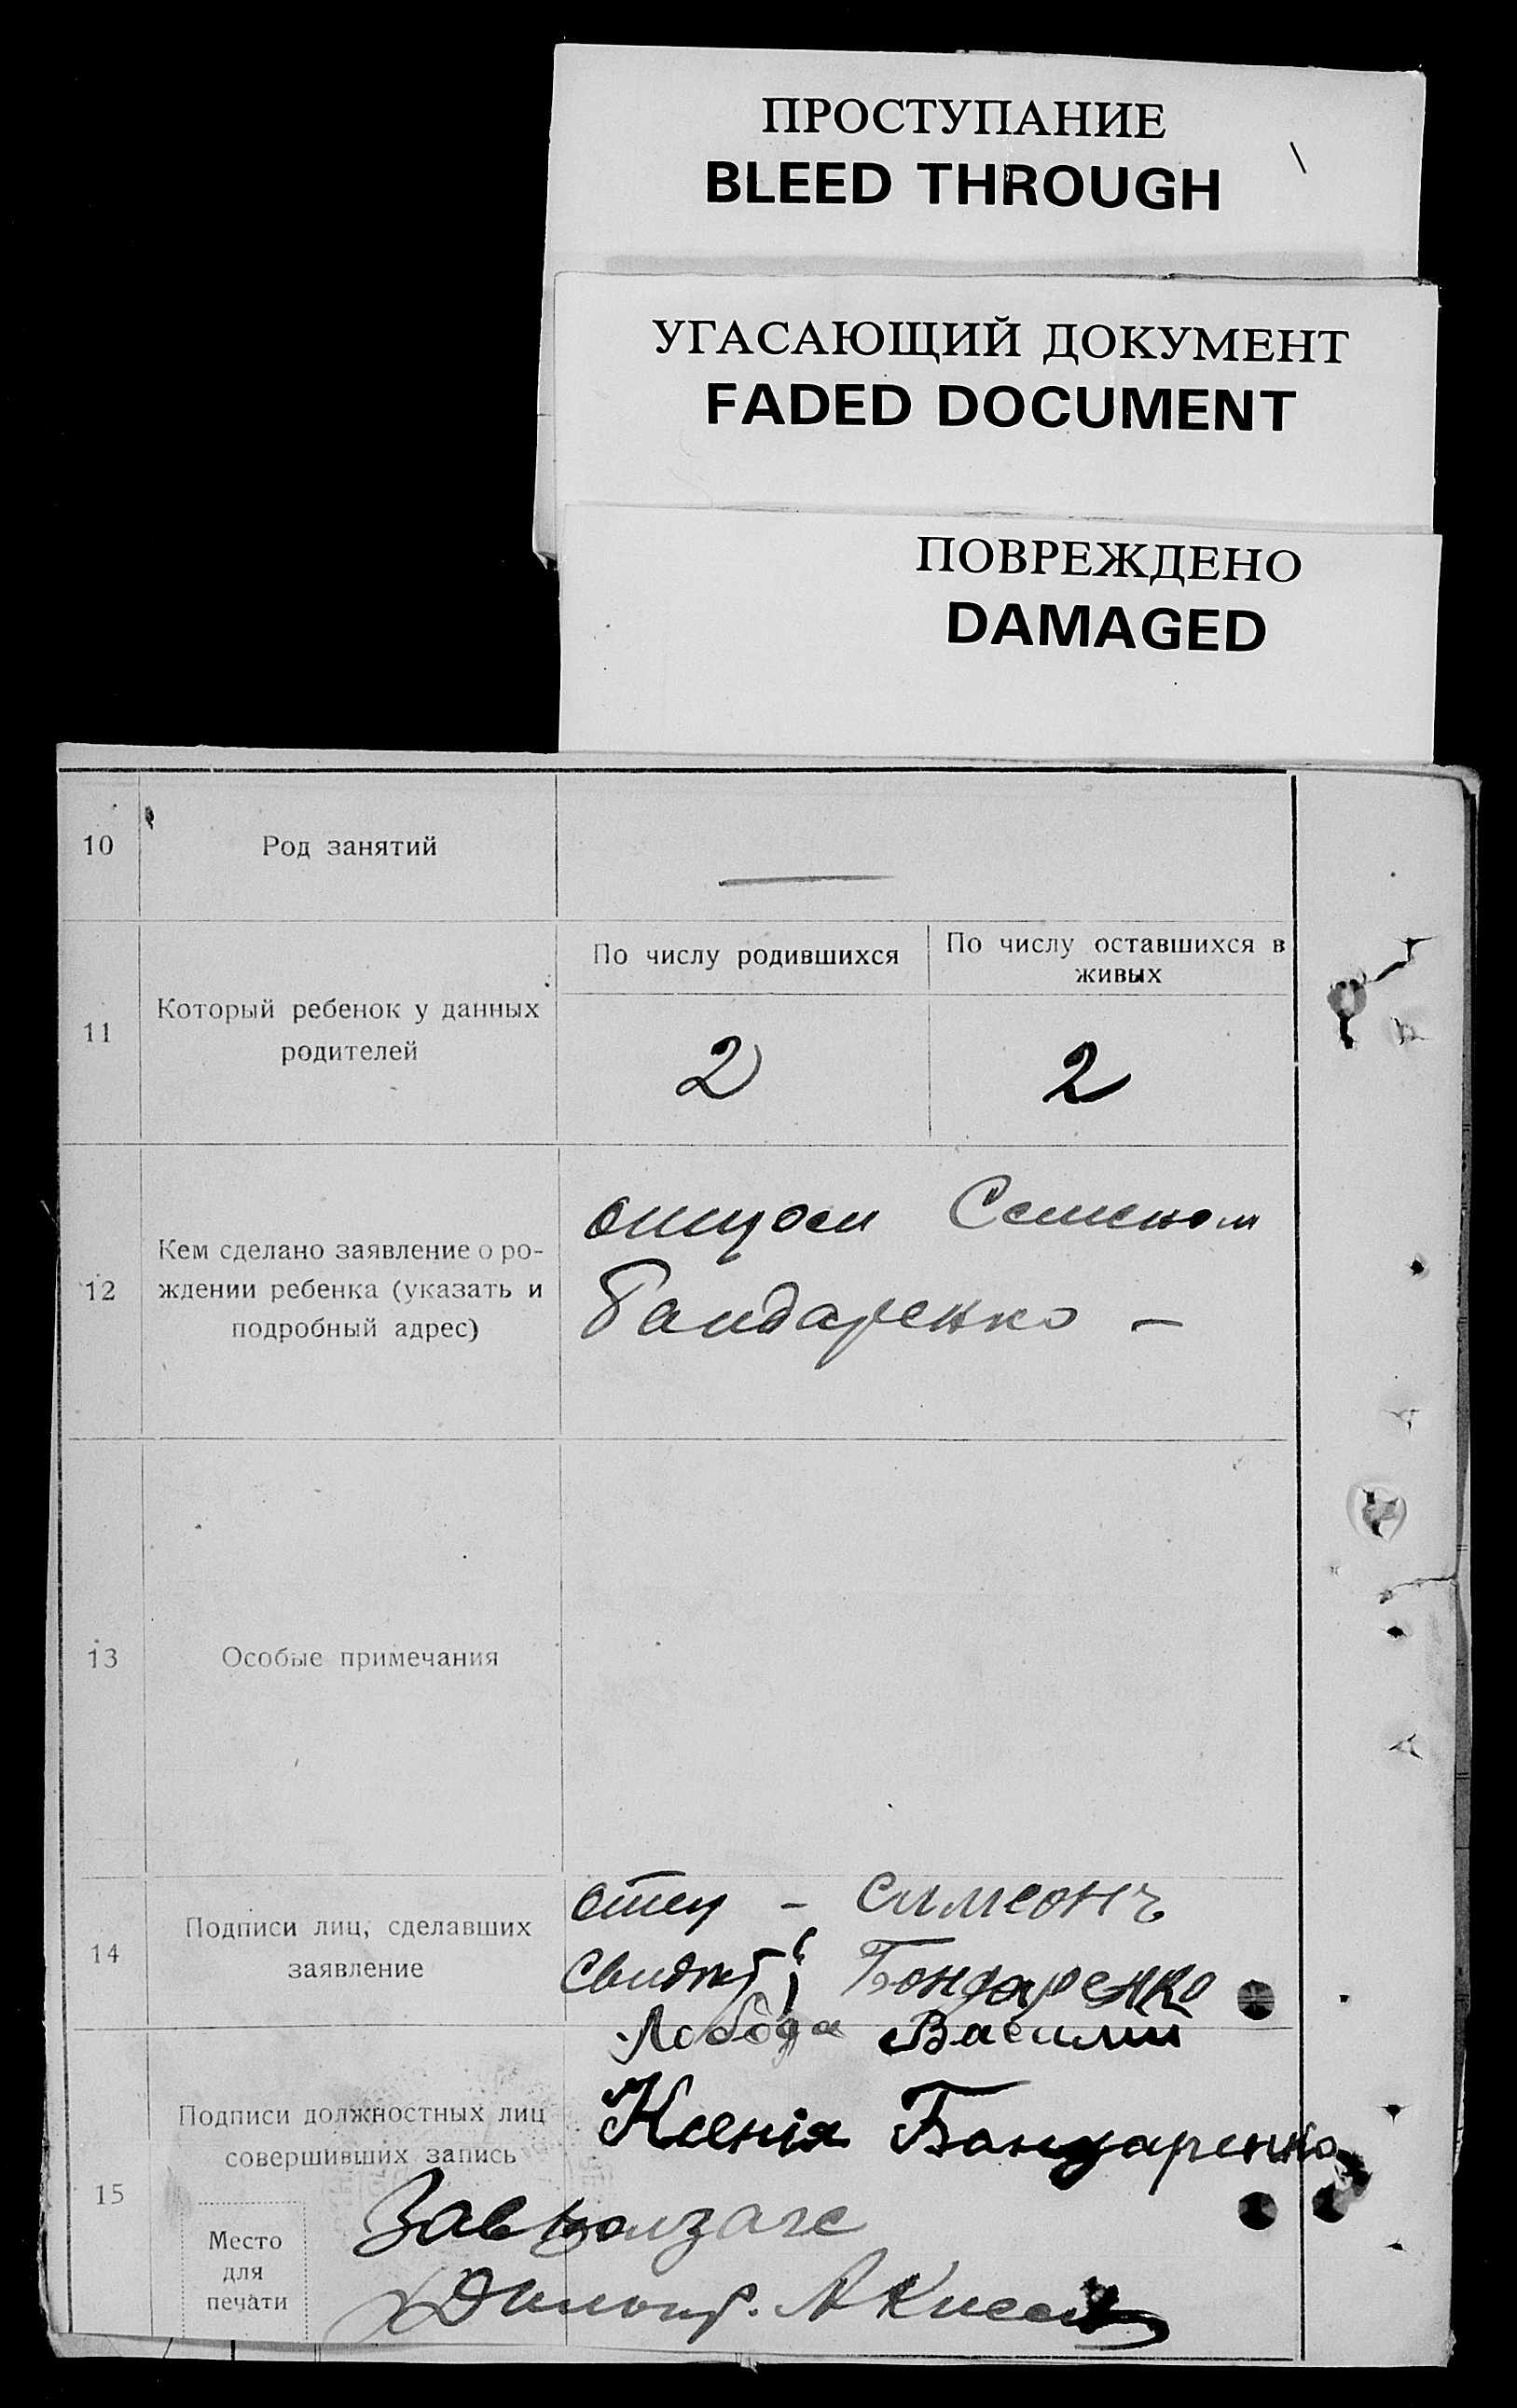 ПРОСТУПАНИЕ
BLEED THROUGH
УГАСАЮЩИЙ ДОКУМЕНТ
FADED DOCUMENT
ПОВРЕЖДЕНО
DAMAGED
10
Род занятий
—
11
Который ребенок у данных
родителей
По числу родившихся
По числу оставшихся в
живых
2
2
12
Кем сделано заявление о ро-
ждении ребенка (указать и
подробный адрес)
отцом Семеном
Бандаренко —
13
Особые примечания
14
Подписи лиц, сделавших
заявление
отец - Симеонъ
Бондаренко
Лобода Василий
15
Подписи должностных лиц
совершивших запись
Ксенія Бандаренко
Место
для
печати